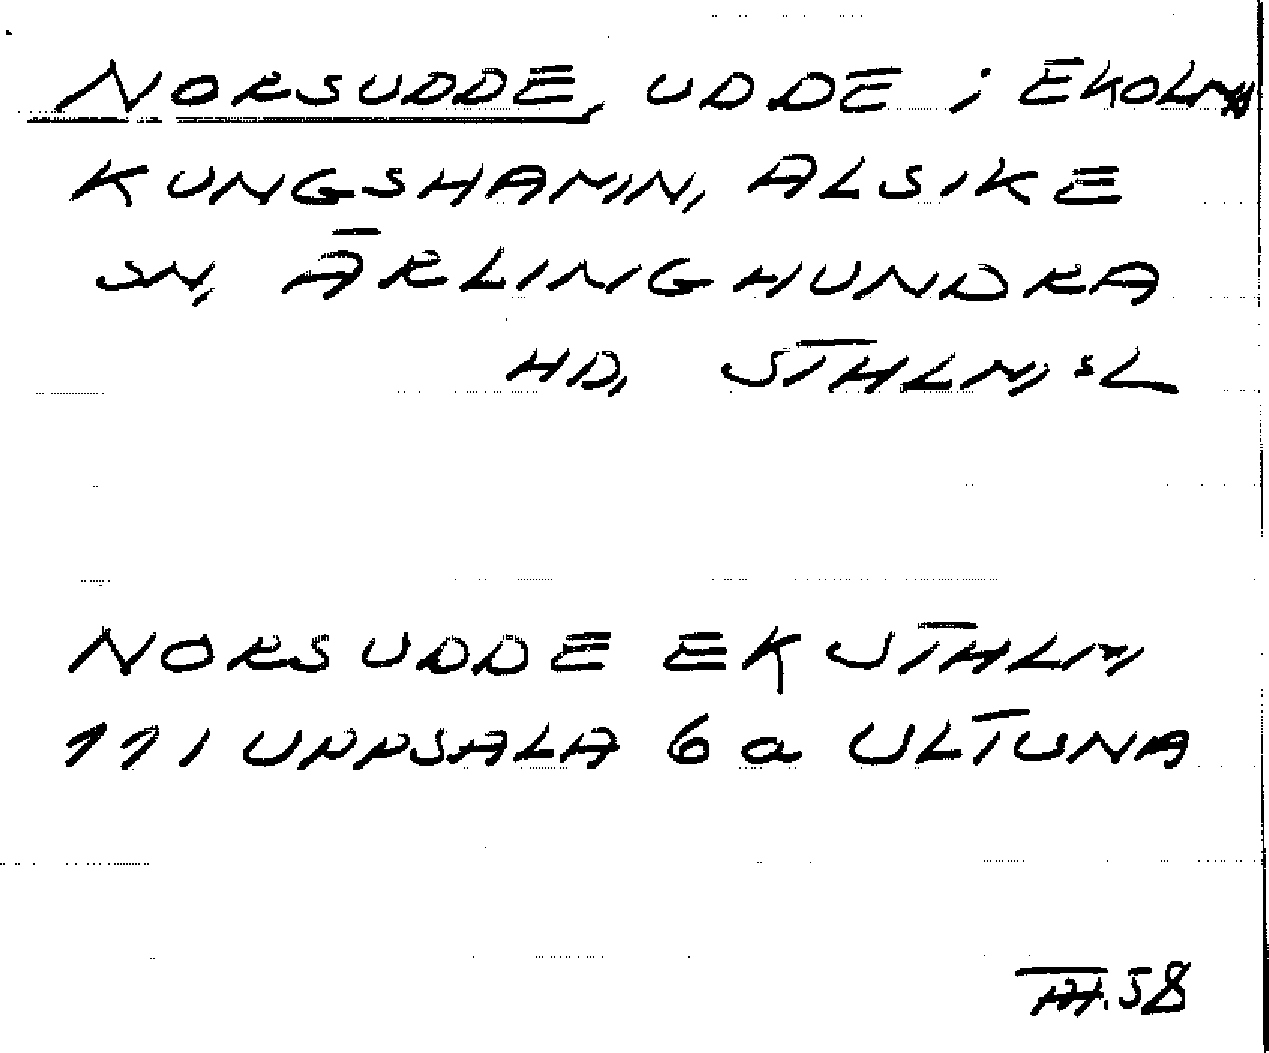 NORSUDDE, UDDE i EKOLN
KUNGSHAMN, ALSIKE
SN, ÄRLINGHUNDRA
HD, STHLM,SL
NORSUDDE EK STHLM
111 UPPSALA 6 a ULTUNA
58